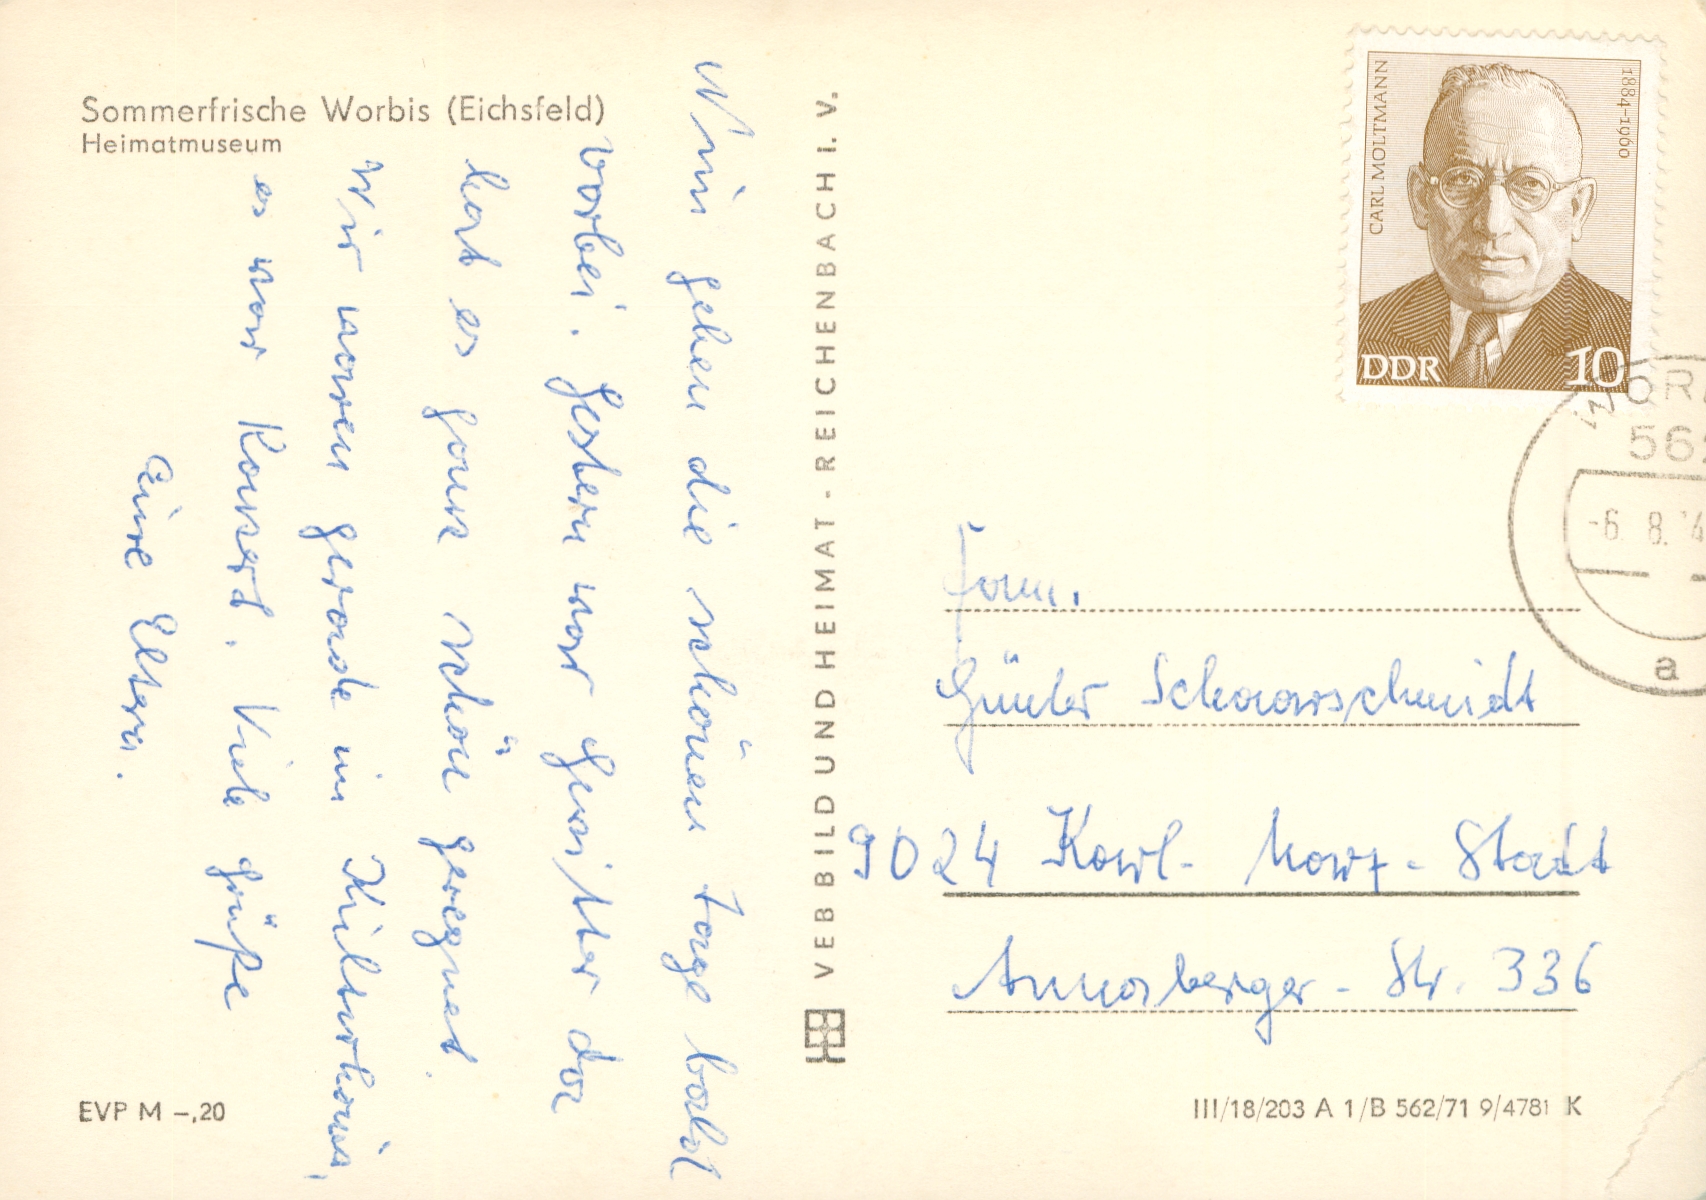 Sommerfrische Worbis (Eichsfeld)
Heimatmuseum
Nun gehen die schönen Tage bald
vorbei. Gestern war Gewitter da
hat es ganz schön geregnet.
Wir waren gerade im Kulturhaus,
es war Konzert. Viele Grüße
Eure Eltern.
EVP M –,20
VEB BILD UND HEIMAT - REICHENBACH I. V.
CARL MOLTMANN
1884-1960
DDR 10
562
-6. 8. 74
a
Fam.
Günter Schaarschmidt
9024 Karl-Marx-Stadt
Annaberger-Str. 336
III/18/203 A 1/B 562/71 9/4781 K